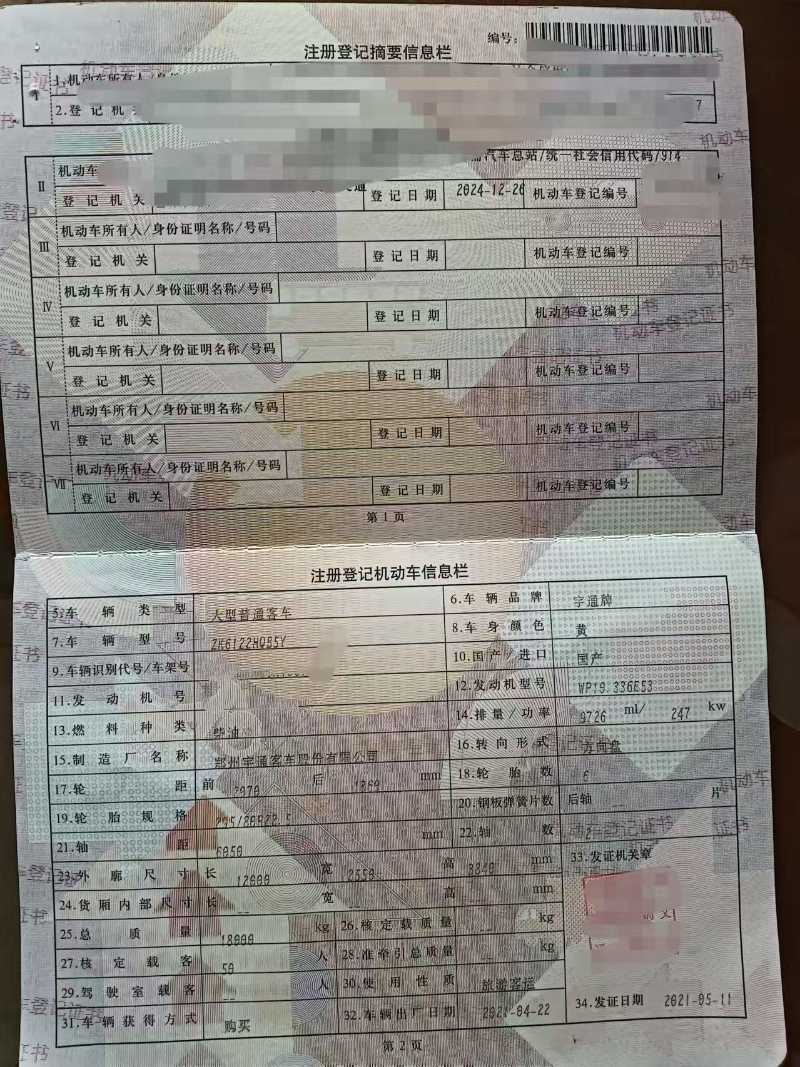 编号:
注册登记摘要信息栏
Ⅰ 1.机动车所有人/身份
2.登记机 7
Ⅱ 机动车 汽车总站/统一社会信用代码/914
登记机关 登记日期 2024-12-26 机动车登记编号
Ⅲ 机动车所有人/身份证明名称/号码
登记机关 登记日期 机动车登记编号
Ⅳ 机动车所有人/身份证明名称/号码
登记机关 登记日期 机动车登记编号
Ⅴ 机动车所有人/身份证明名称/号码
登记机关 登记日期 机动车登记编号
Ⅵ 机动车所有人/身份证明名称/号码
登记机关 登记日期 机动车登记编号
Ⅶ 机动车所有人/身份证明名称/号码
登记机关 登记日期 机动车登记编号
第1页
注册登记机动车信息栏
5.车辆类型 大型普通客车 6.车辆品牌 宇通牌
7.车辆型号 ZK6122HQB5Y 8.车身颜色 黄
9.车辆识别代号/车架号 10.国产/进口 国产
11.发动机号 12.发动机型号 WP10.336E53
13.燃料种类 柴油 14.排量/功率 9726 ml/ 247 kw
15.制造厂名称 郑州宇通客车股份有限公司 16.转向形式 方向盘
17.轮距 前 后 mm 18.轮胎数 6
19.轮胎规格 20.钢板弹簧片数 后轴 -- 片
21.轴距 6050 mm 22.轴数 2
23.外廓尺寸 长 12000 宽 2550 高 3840 mm 33.发证机关章
24.货厢内部尺寸 长 -- 宽 -- 高 -- mm
25.总质量 18000 kg 26.核定载质量 -- kg
27.核定载客 50 人 28.准牵引总质量 -- kg
29.驾驶室载客 -- 人 30.使用性质 旅游客运
31.车辆获得方式 购买 32.车辆出厂日期 2021-04-22 34.发证日期 2021-05-11
第2页